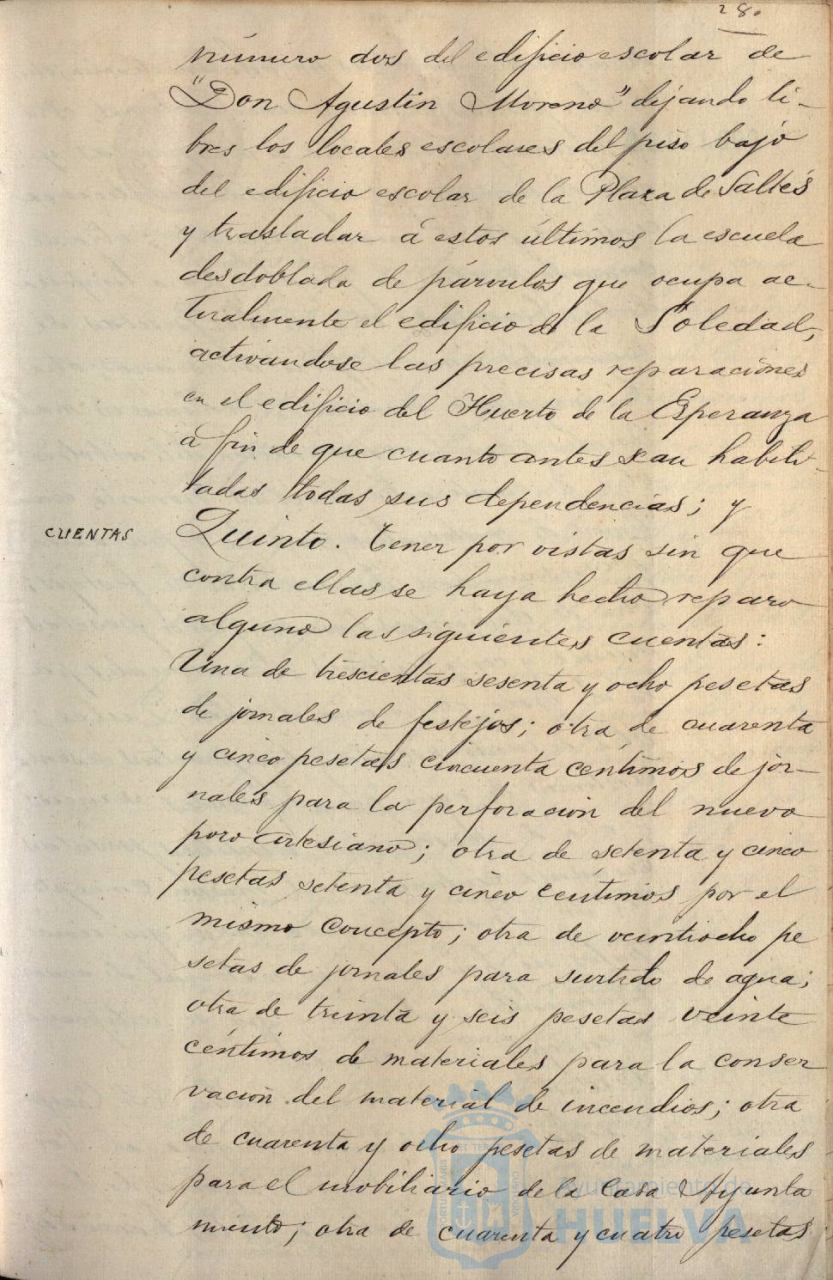 28.
número dos del edificio escolar de
"Don Agustin Moreno" dejando li-
bres los locales escolares del piso bajo
del edificio escolar de la Plaza de Saltés
y trasladar á estos últimos la escuela
desdoblada de párvulos que ocupa ac-
tualmente el edificio de la Soledad,
activandose las precisas reparaciones
en el edificio del Huerto de la Esperanza
a fin de que cuanto antes sean habili-
tadas todas sus dependencias; y
CUENTAS
Quinto. Tener por vistas sin que
contra ellas se haya hecho reparo
alguno las siguientes cuentas:
Una de trescientas sesenta y ocho pesetas
de jornales de festejos; otra de cuarenta
y cinco pesetas cincuenta centimos de jor-
nales para la perforación del nuevo
pozo artesiano; otra de setenta y cinco
pesetas setenta y cinco centimos por el
mismo concepto; otra de veintiocho pe
setas de jornales para surtido de agua;
otra de treinta y seis pesetas veinte
céntimos de materiales para la conser
vación del material de incendios; otra
de cuarenta y ocho pesetas de materiales
para el mobiliario de la Casa Ayunta
miento; otra de cuarenta y cuatro pesetas
Ayuntamiento de
HUELVA